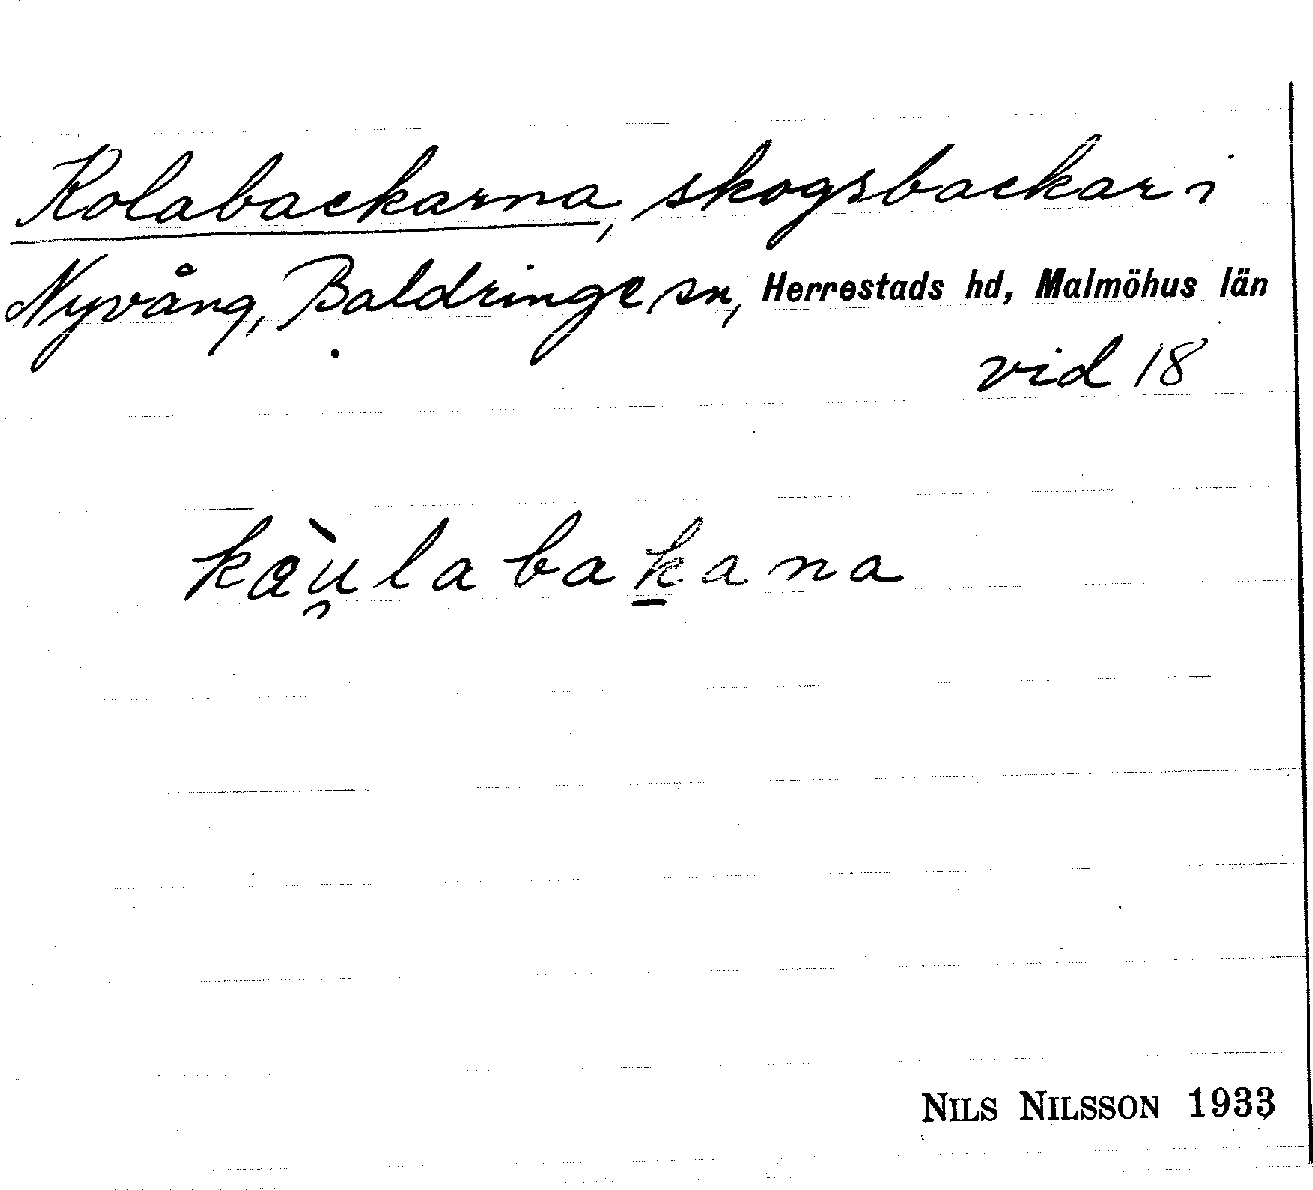 Kolabackarna, skogsbackar i
Nyvång, Baldringe sn, Herrestads hd, Malmöhus län
vid 18
kəù̯labaḵana
NILS NILSSON 1933